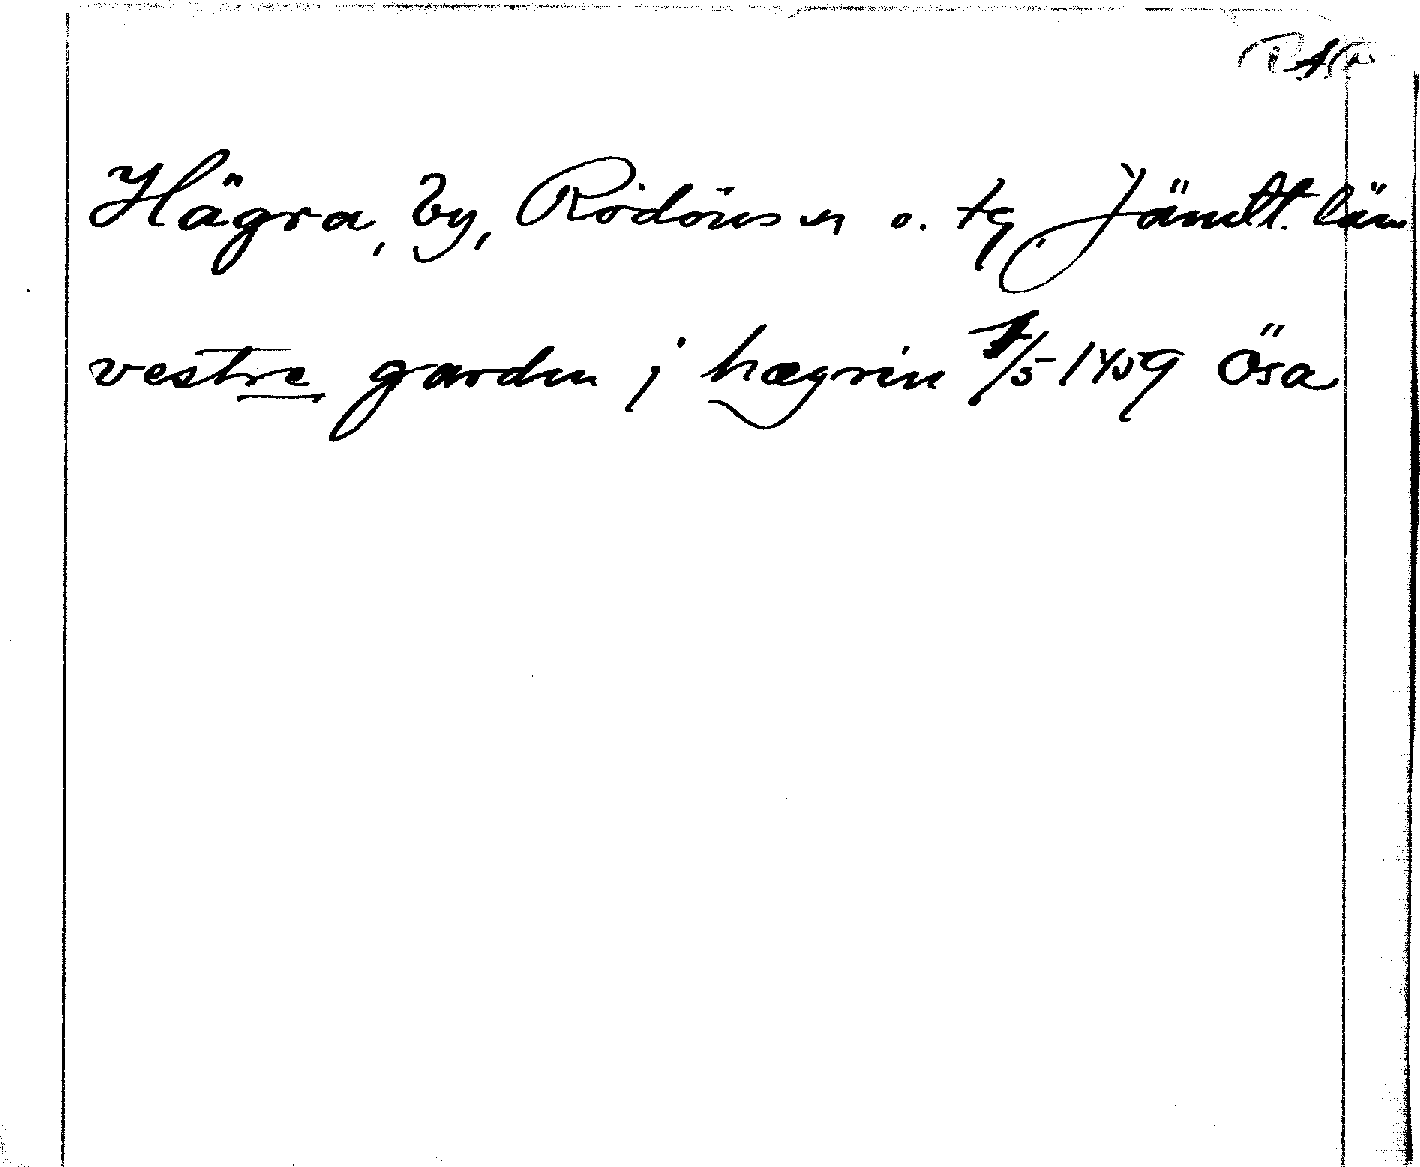 Hägra, by, Rödöns sn o. tg Jämtl. län
vestre garden j hægrin /5 1459 Ösa